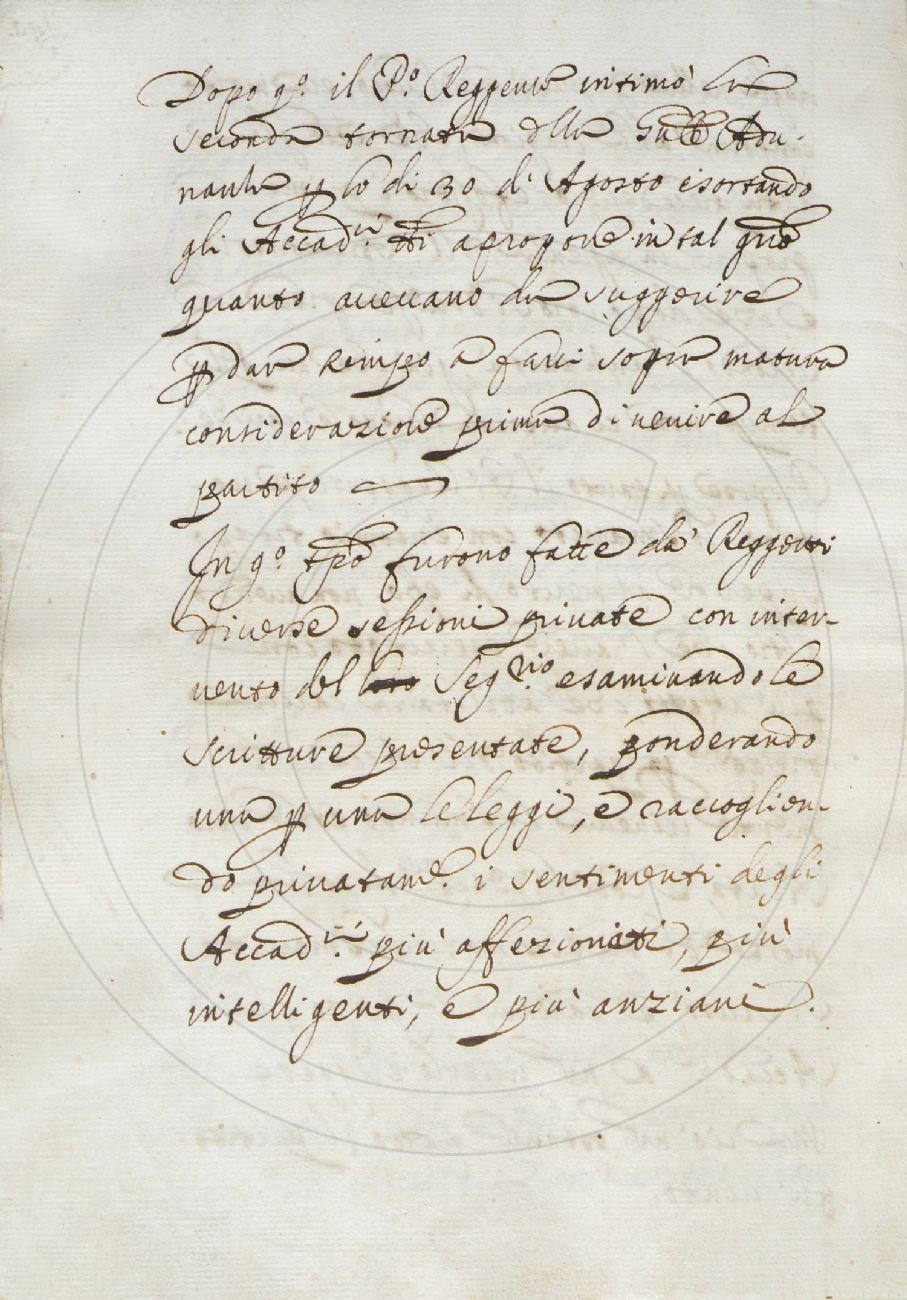 Dopo q.º il P.º Reggente intimò la
seconda tornata della Sud.ª Adu-
nanza p lo dì 30 d'Agosto esortando
gli Accad.ci tti a propore in tal gno
quanto avevano da suggerire
p dar tempo a farci sopra matura
considerazione prima di venire al
partito
In q.º tpo furono fatte da Reggenti
diverse sessioni private con inter-
vento del loro Seg.rio esaminando le
scritture presentate, ponderando
una p una le leggi, e raccoglien-
do privatam.e i sentimenti degli
Accad.ci più affezionati, più
intelligenti, e più anziani.